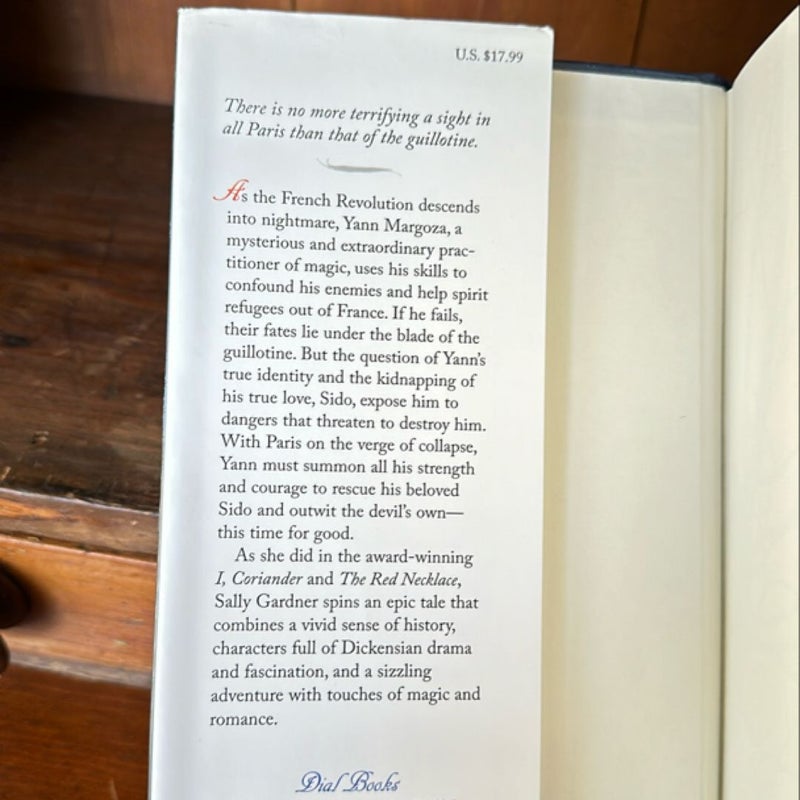 U.S. $17.99
There is no more terrifying a sight in
all Paris than that of the guillotine.
As the French Revolution descends
into nightmare, Yann Margoza, a
mysterious and extraordinary prac-
titioner of magic, uses his skills to
confound his enemies and help spirit
refugees out of France. If he fails,
their fates lie under the blade of the
guillotine. But the question of Yann's
true identity and the kidnapping of
his true love, Sido, expose him to
dangers that threaten to destroy him.
With Paris on the verge of collapse,
Yann must summon all his strength
and courage to rescue his beloved
Sido and outwit the devil's own—
this time for good.
As she did in the award-winning
I, Coriander and The Red Necklace,
Sally Gardner spins an epic tale that
combines a vivid sense of history,
characters full of Dickensian drama
and fascination, and a sizzling
adventure with touches of magic and
romance.
Dial Books